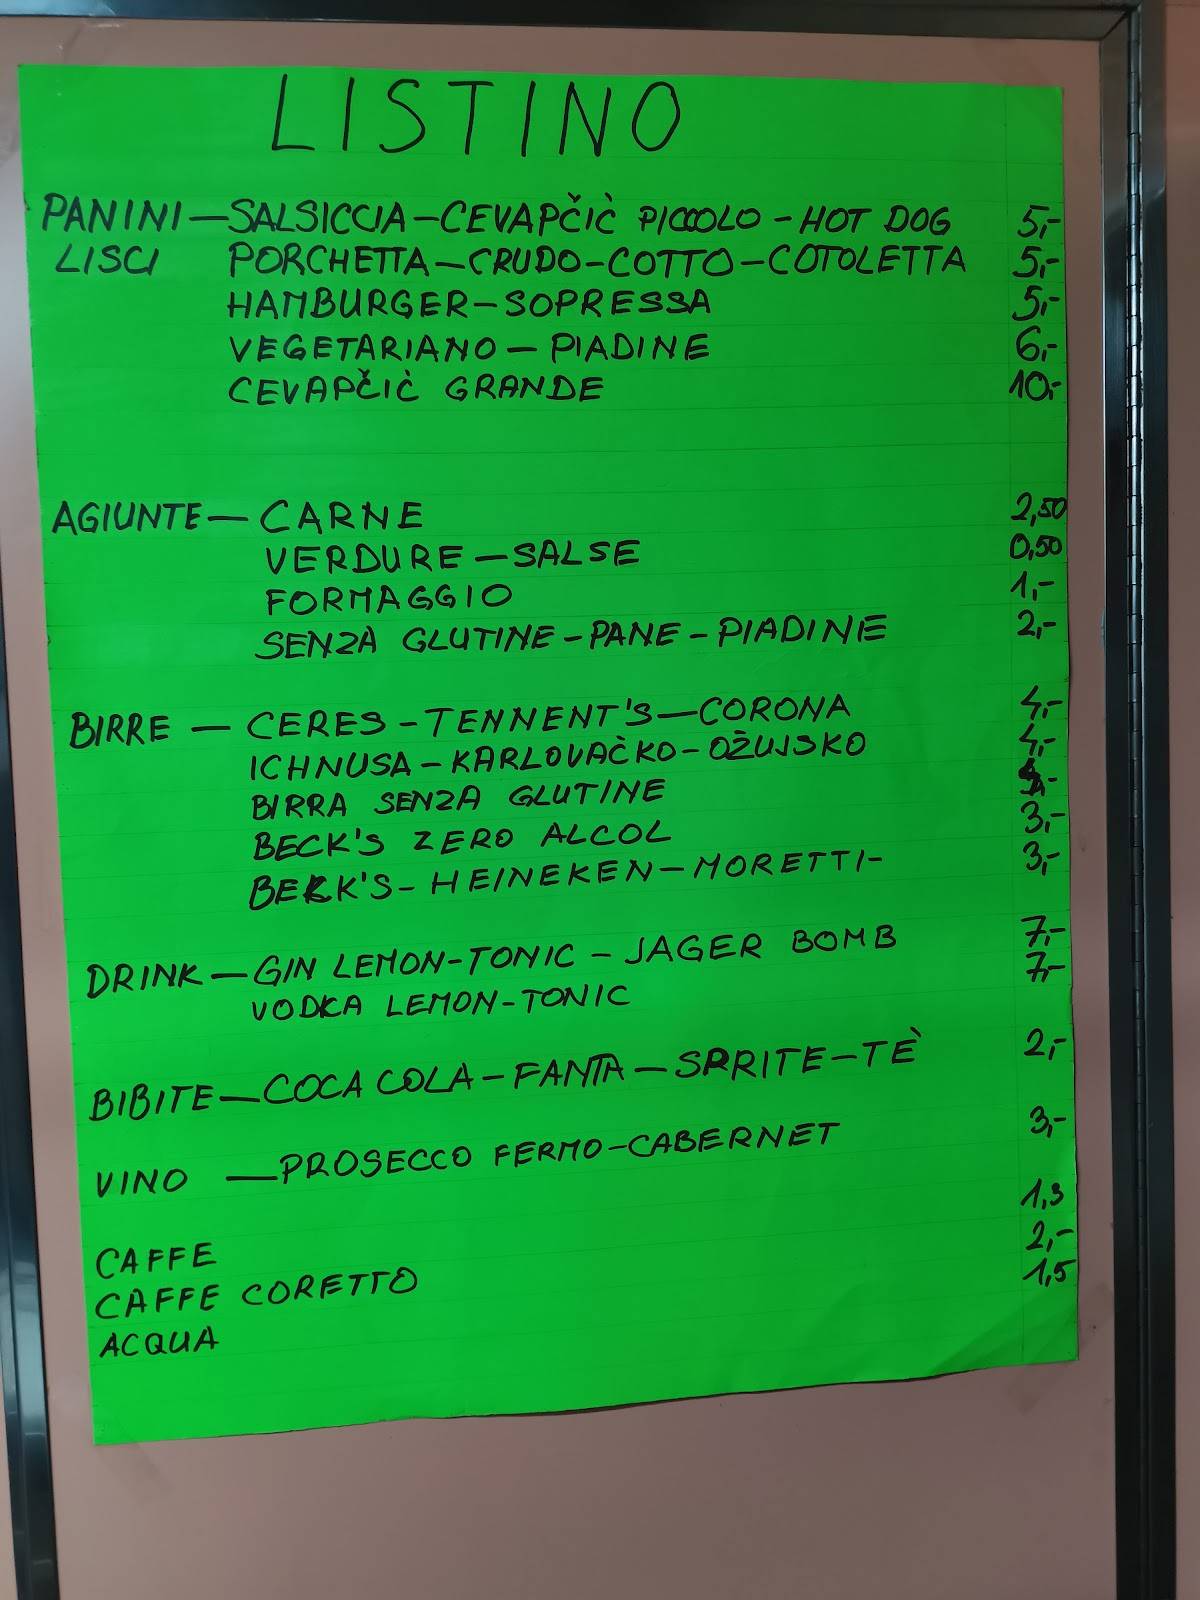 LISTINO
PANINI — SALSICCIA - CEVAPČIĊ PICCOLO - HOT DOG 5,-
LISCI PORCHETTA - CRUDO - COTTO - COTOLETTA 5,-
HAMBURGER - SOPRESSA 5,-
VEGETARIANO - PIADINE 6,-
CEVAPČIĊ GRANDE 10,-
AGIUNTE — CARNE 2,50
VERDURE - SALSE 0,50
FORMAGGIO 1,-
SENZA GLUTINE - PANE - PIADINE 2,-
BIRRE — CERES - TENNENT'S - CORONA 4,-
ICHNUSA - KARLOVAČKO - OŽUJSKO 4,-
BIRRA SENZA GLUTINE
BECK'S ZERO ALCOL 3,-
BECK'S - HEINEKEN - MORETTI - 3,-
DRINK — GIN LEMON - TONIC - JAGER BOMB 7,-
VODKA LEMON - TONIC 7,-
BIBITE — COCA COLA - FANTA - SPRITE - TÈ 2,-
VINO — PROSECCO FERMO - CABERNET 3,-
CAFFE 1,3
CAFFE CORETTO 2,-
ACQUA 1,5